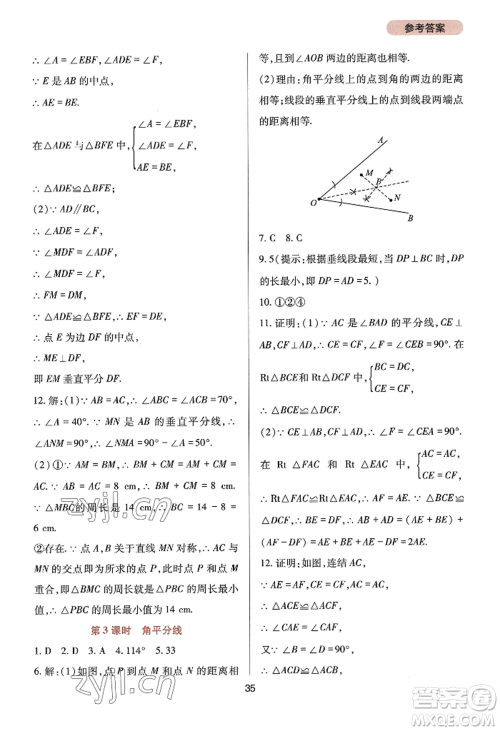 参考答案
∴ ∠A = ∠EBF, ∠ADE = ∠F.
∵ E 是 AB 的中点,
∴ AE = BE.
在 △ADE 与 △BFE 中, { ∠A = ∠EBF,
∠ADE = ∠F,
AE = BE,
∴ △ADE≌△BFE.
(2)∵ AD∥BC,
∴ ∠MDF = ∠ADF.
∵ ∠GDF = ∠ADF,
∴ ∠MDF = ∠GDF.
∴ FM = DM.
∵ △ADE≌△BFE, ∴ EF = DE.
∴ 点 E 为边 DF 的中点,
∴ ME⊥DF,
即 EM 垂直平分 DF.
12. 解:(1)∵ AB = AC, ∴ ∠ABC = ∠ACB = 70°,
∴ ∠A = 40°. ∵ MN 是 AB 的垂直平分线,
∴ ∠ANM = 90°, ∴ ∠NMA = 50°.
(2)① ∵ AM = BM, ∴ BM + CM = AM + CM =
AC. ∵ AB = AC = 8 cm, ∴ BM + CM = 8 cm.
∵ △MBC 的周长是 14 cm, ∴ BC = 14 - 8 =
6 cm.
②存在. ∵ 点 A、点 B 关于直线 MN 对称, ∴ AC 与
MN 的交点即为所求的点 P, 此时点 P 和点 M
重合, 即 △BMC 的周长就是 △PBC 周长的最小
值, ∴ △PBC 的周长最小值为 14 cm.
第 3 课时 角平分线
1. D 2. D 3. A 4. 114° 5. 33
6. 解:(1)如图, 点 P 到点 M 和点 N 的距离相
等, 且到 ∠AOB 两边的距离也相等.
(2)理由:角平分线上的点到角的两边的距离
相等;线段的垂直平分线上的点到线段两端点
的距离相等.
A
M
P
N
O
B
7. C 8. C
9. 5(提示:根据垂线段最短, 当 DP⊥BC 时, DP
的长最小, 则 DP = DA = 5. )
10. ①②④
11. 证明:(1)∵ AC 是 ∠BAD 的平分线, CE⊥
AB, CF⊥AD, ∴ CE = CF, ∠CFD = ∠CEB = 90°.
在 Rt△BCE 和 Rt△DCF 中, { BC = DC,
CE = CF,
∴ Rt△BCE≌Rt△DCF.
(2)∵ CE⊥AB, CF⊥AD, ∴ ∠FAC = ∠CEA = 90°.
在 Rt △FAC 和 Rt △EAC 中, { AC = AC,
CE = CF,
∴ Rt△FAC≌Rt△EAC, ∴ AF = AE.
∵ △BCE≌△DCF, ∴ BE = DF.
∴ AB + AD = (AE + BE) +
(AF - DF) = AE + BE + AE - DF = 2AE.
12. 证明:如图, 连结 AC.
∵ AE⊥BC,
∴ ∠AEC = 90°.
35
zyjl.cn
zyjl.cn
答案圈
MXQE.COM